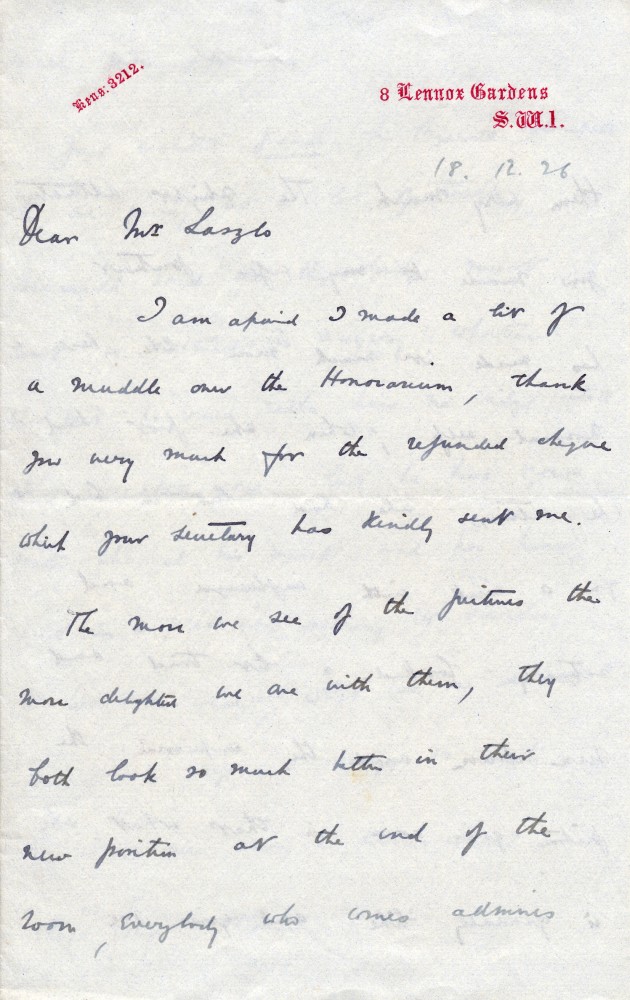 Kens: 3212.
8 Lennox Gardens
S.W.1.
18. 12. 26
Dear Mr Laszlo
I am afraid I made a bit of
a muddle over the Honorarium, thank
you very much for the refunded cheque
which your secretary has kindly sent me.
The more we see of the pictures the
more delighted we are with them, they
both look so much better in their
new position at the end of the
room, Everybody who comes admires